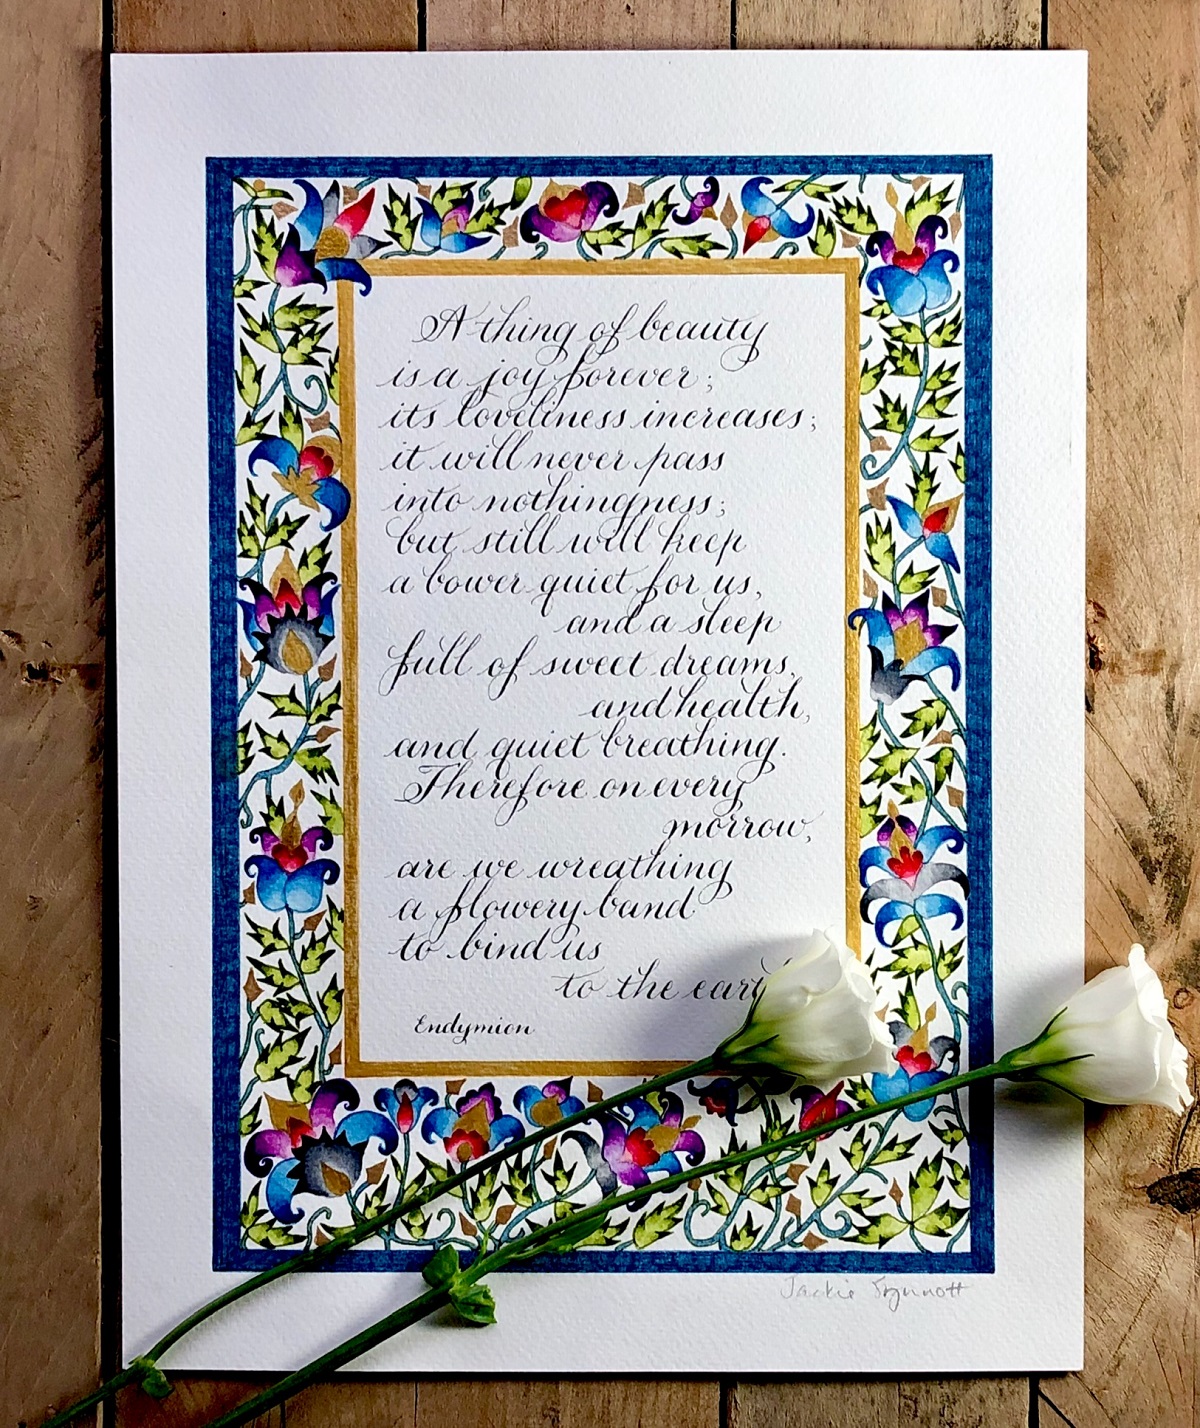 A thing of beauty
is a joy forever;
its loveliness increases;
it will never pass
into nothingness;
but still will keep
a bower quiet for us,
and a sleep
full of sweet dreams,
and health,
and quiet breathing.
Therefore on every
morrow,
are we wreathing
a flowery band
to bind us
to the
Endymion
Jackie Synnott